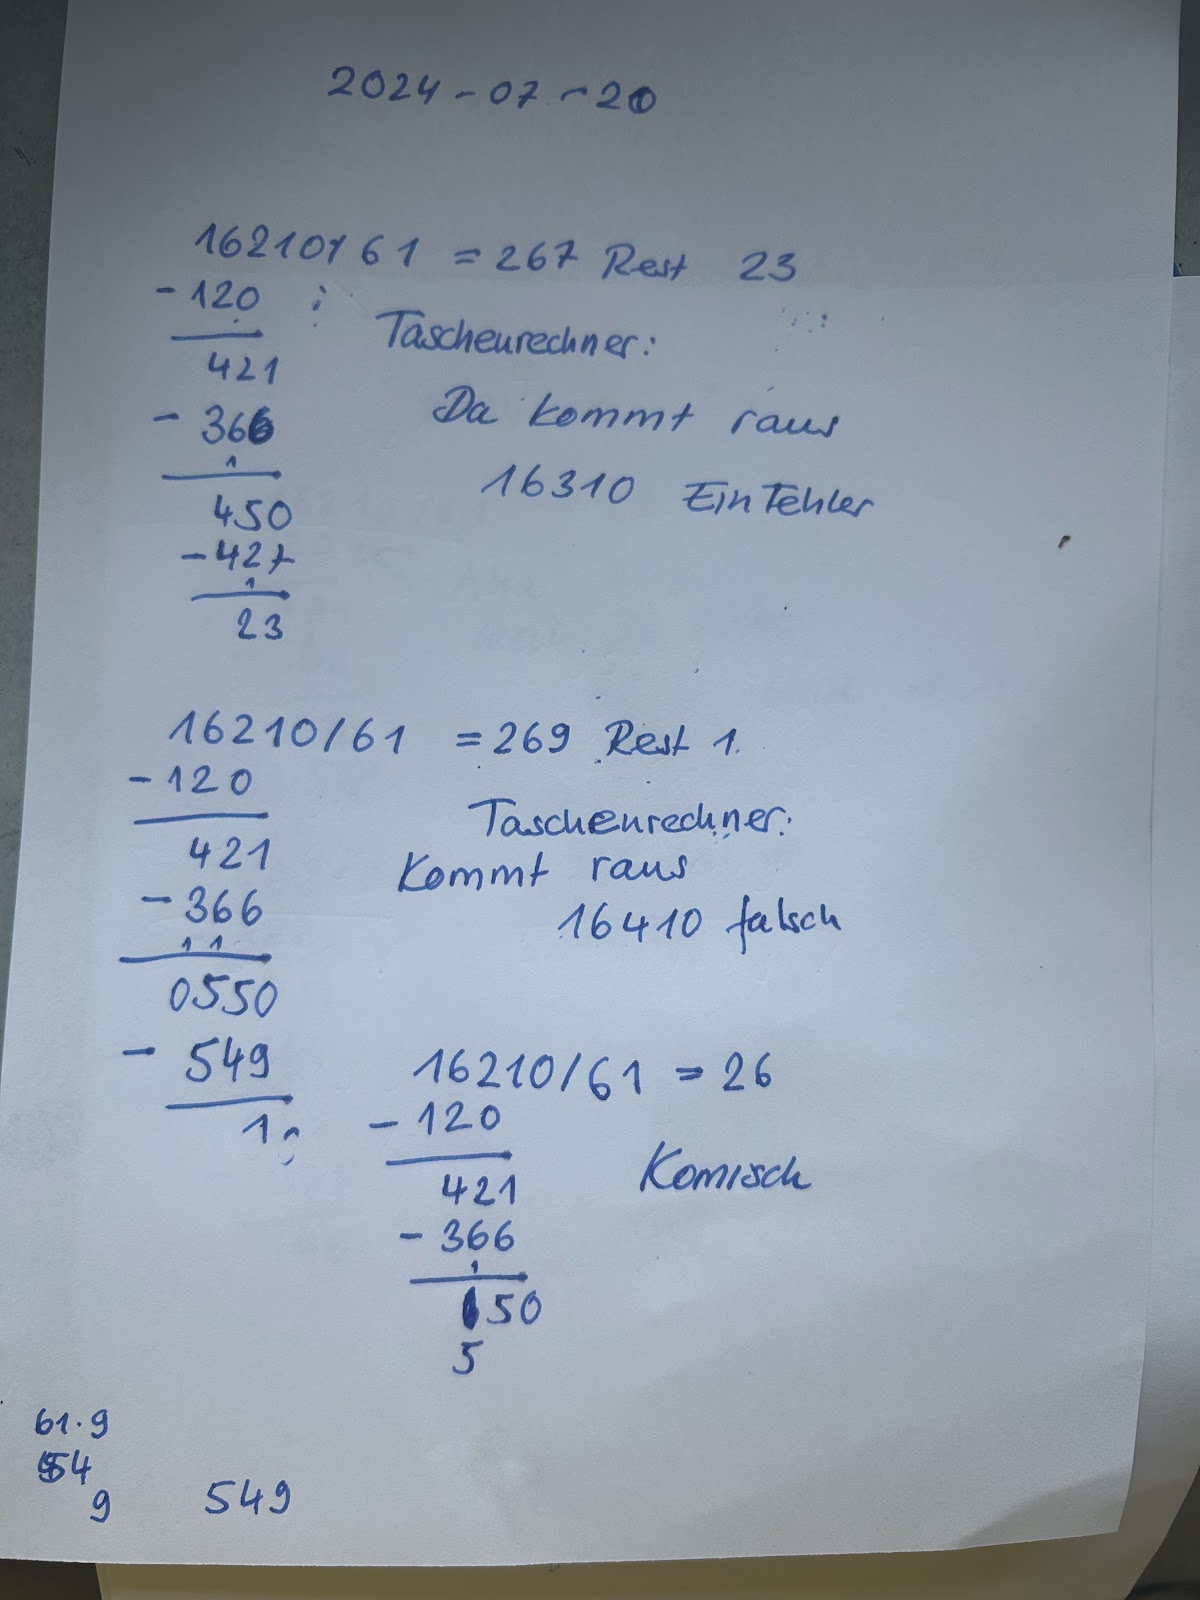 2024-07-20
16210/61 = 267 Rest 23
-120
421
Taschenrechner:
-366
Da kommt raus
1
16310 Ein Fehler
450
-427
1
23
16210/61 = 269 Rest 1.
-120
Taschenrechner:
421
Kommt raus
-366
16410 falsch
11
0550
-549
1
16210/61 = 26
-120
421
Komisch
-366
1
50
5
61·9
54
9
549